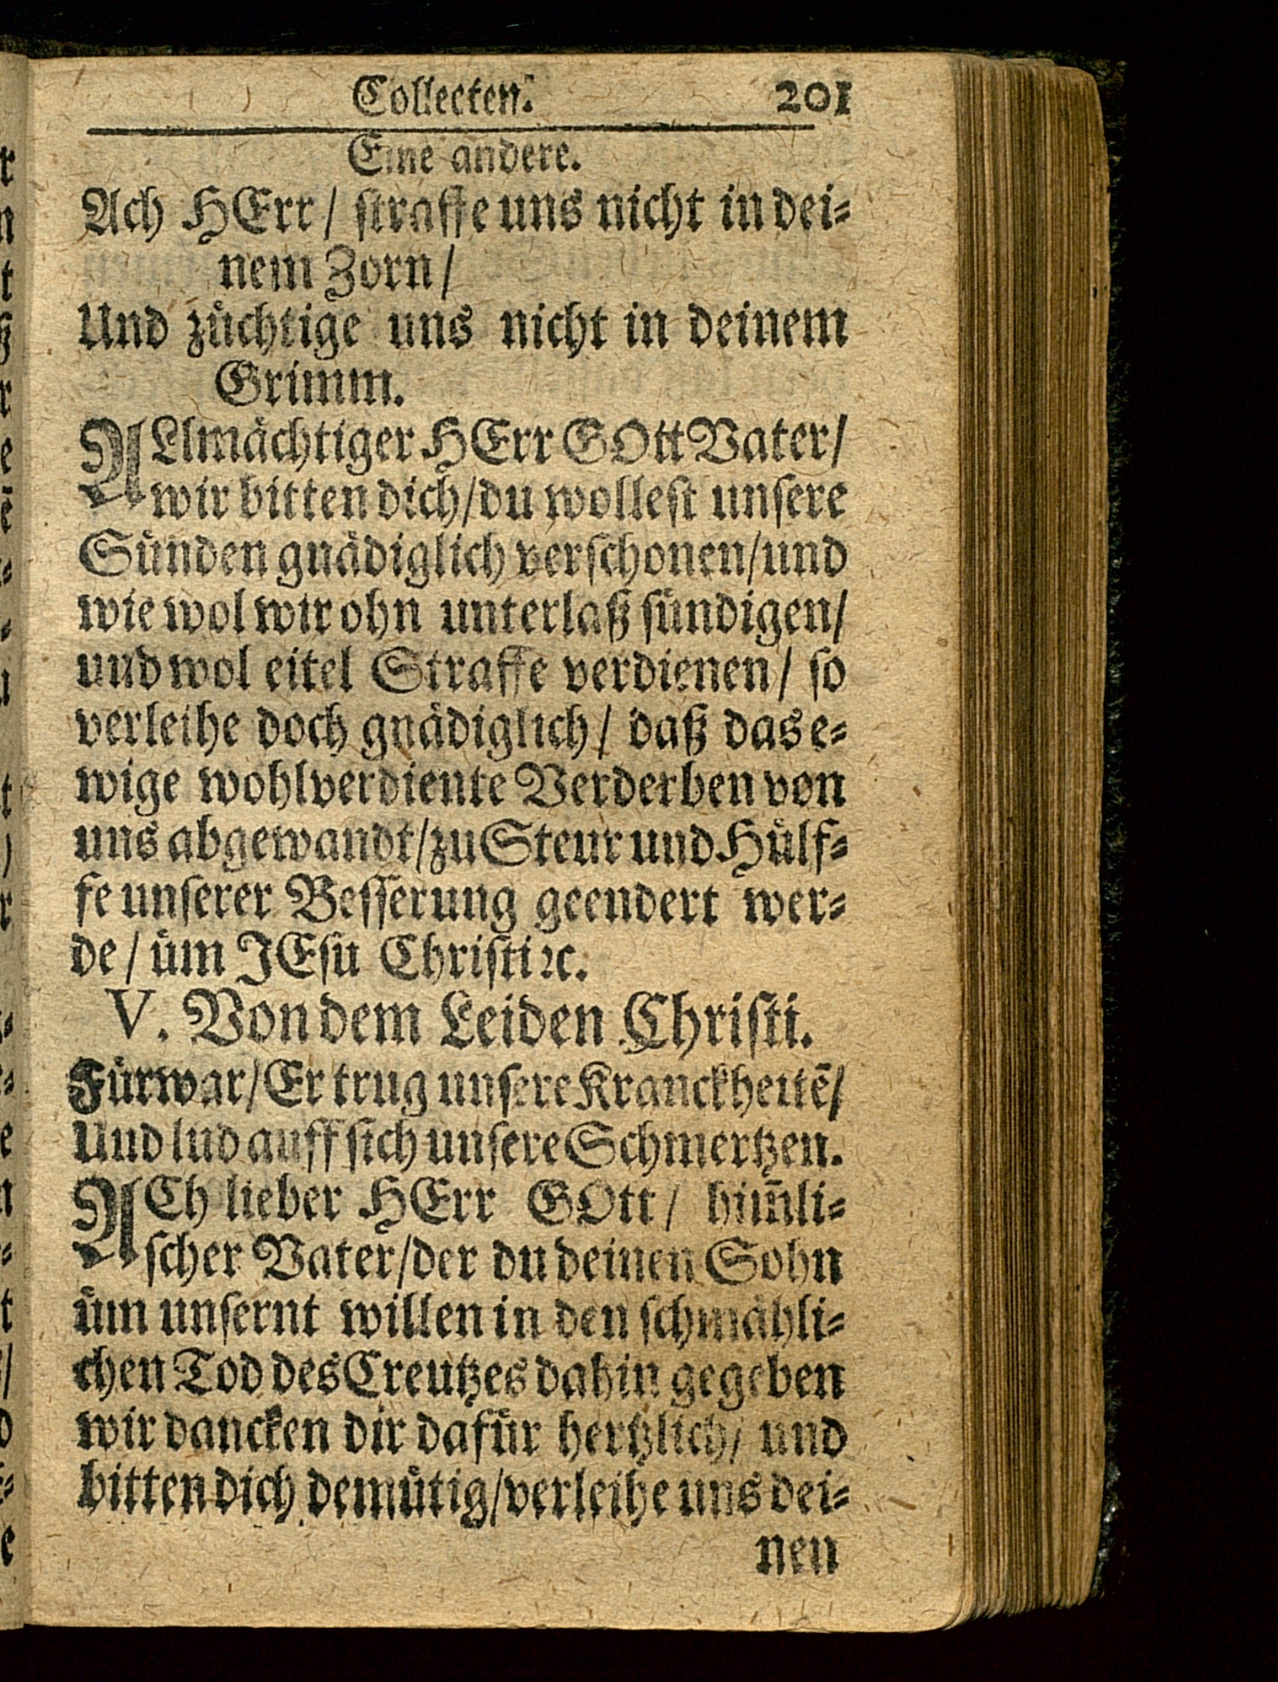 Collecten. 201
Eine andere.
Ach HErr/ straffe uns nicht in dei⸗
nem Zorn/
Und züchtige uns nicht in deinem
Grimm.
ALlmächtiger HErr GOtt Vater/
wir bitten dich/du wollest unsere
Sünden gnädiglich verschonen/und
wie wol wir ohn unterlaß sündigen/
und wol eitel Straffe verdienen/ so
verleihe doch gnädiglich/ daß das e⸗
wige wohlverdiente Verderben von
uns abgewandt/zu Steur und Hülf⸗
fe unserer Besserung geendert wer⸗
de/ üm JEsu Christi ꝛc.
V. Von dem Leiden Christi.
Fürwar/Er trug unsere Kranckheitē/
Und lud auff sich unsere Schmertzen.
ACh lieber HErr GOtt/ him̃li⸗
scher Vater/der du deinen Sohn
üm unsernt willen in den schmähli⸗
chen Tod des Creutzes dahin gegeben
wir dancken dir dafür hertzlich/ und
bitten dich demütig/verleihe uns dei⸗
nen